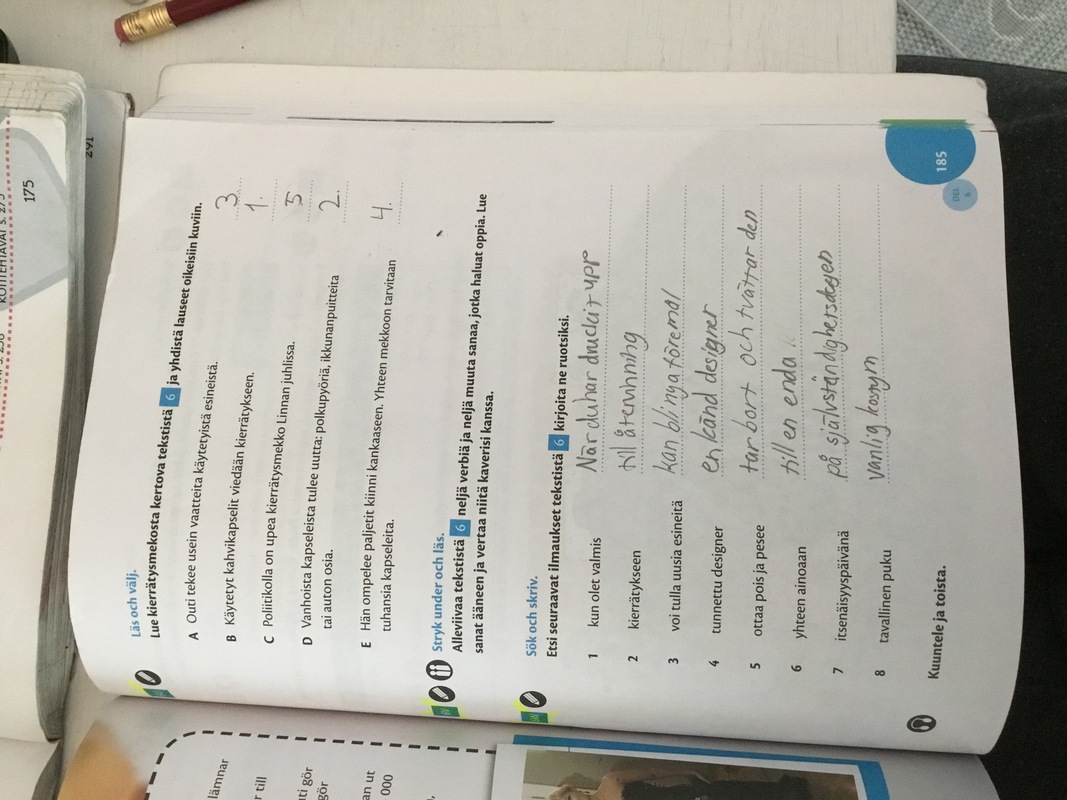 KOITEHTÄVÄT S. 275
175
291
Läs och välj.
Lue kierrätysmekosta kertova tekstistä 6 ja yhdistä lauseet oikeisiin kuviin.
A Outi tekee usein vaatteita käytetyistä esineistä. 3.
B Käytetyt kahvikapselit viedään kierrätykseen. 1.
C Poliitikolla on upea kierrätysmekko Linnan juhlissa. 5
D Vanhoista kapseleista tulee uutta: polkupyöriä, ikkunanpuitteita
tai auton osia. 2.
E Hän ompelee paljetit kiinni kankaaseen. Yhteen mekkoon tarvitaan
tuhansia kapseleita. 4.
Stryk under och läs.
Alleviivaa tekstistä 6 neljä verbiä ja neljä muuta sanaa, jotka haluat oppia. Lue
sanat ääneen ja vertaa niitä kaverisi kanssa.
Sök och skriv.
Etsi seuraavat ilmaukset tekstistä 6 kirjoita ne ruotsiksi.
1 kun olet valmis När du har druckit upp
2 kierrätykseen till återvinning
3 voi tulla uusia esineitä kan bli nya föremål
4 tunnettu designer en känd designer
5 ottaa pois ja pesee tar bort och tvättar den
6 yhteen ainoaan till en enda
7 itsenäisyyspäivänä på självständighetsdagen
8 tavallinen puku vanlig kostym
Kuuntele ja toista.
DEL
6
185
lämnar
r till
ti gör
gör
an ut
000